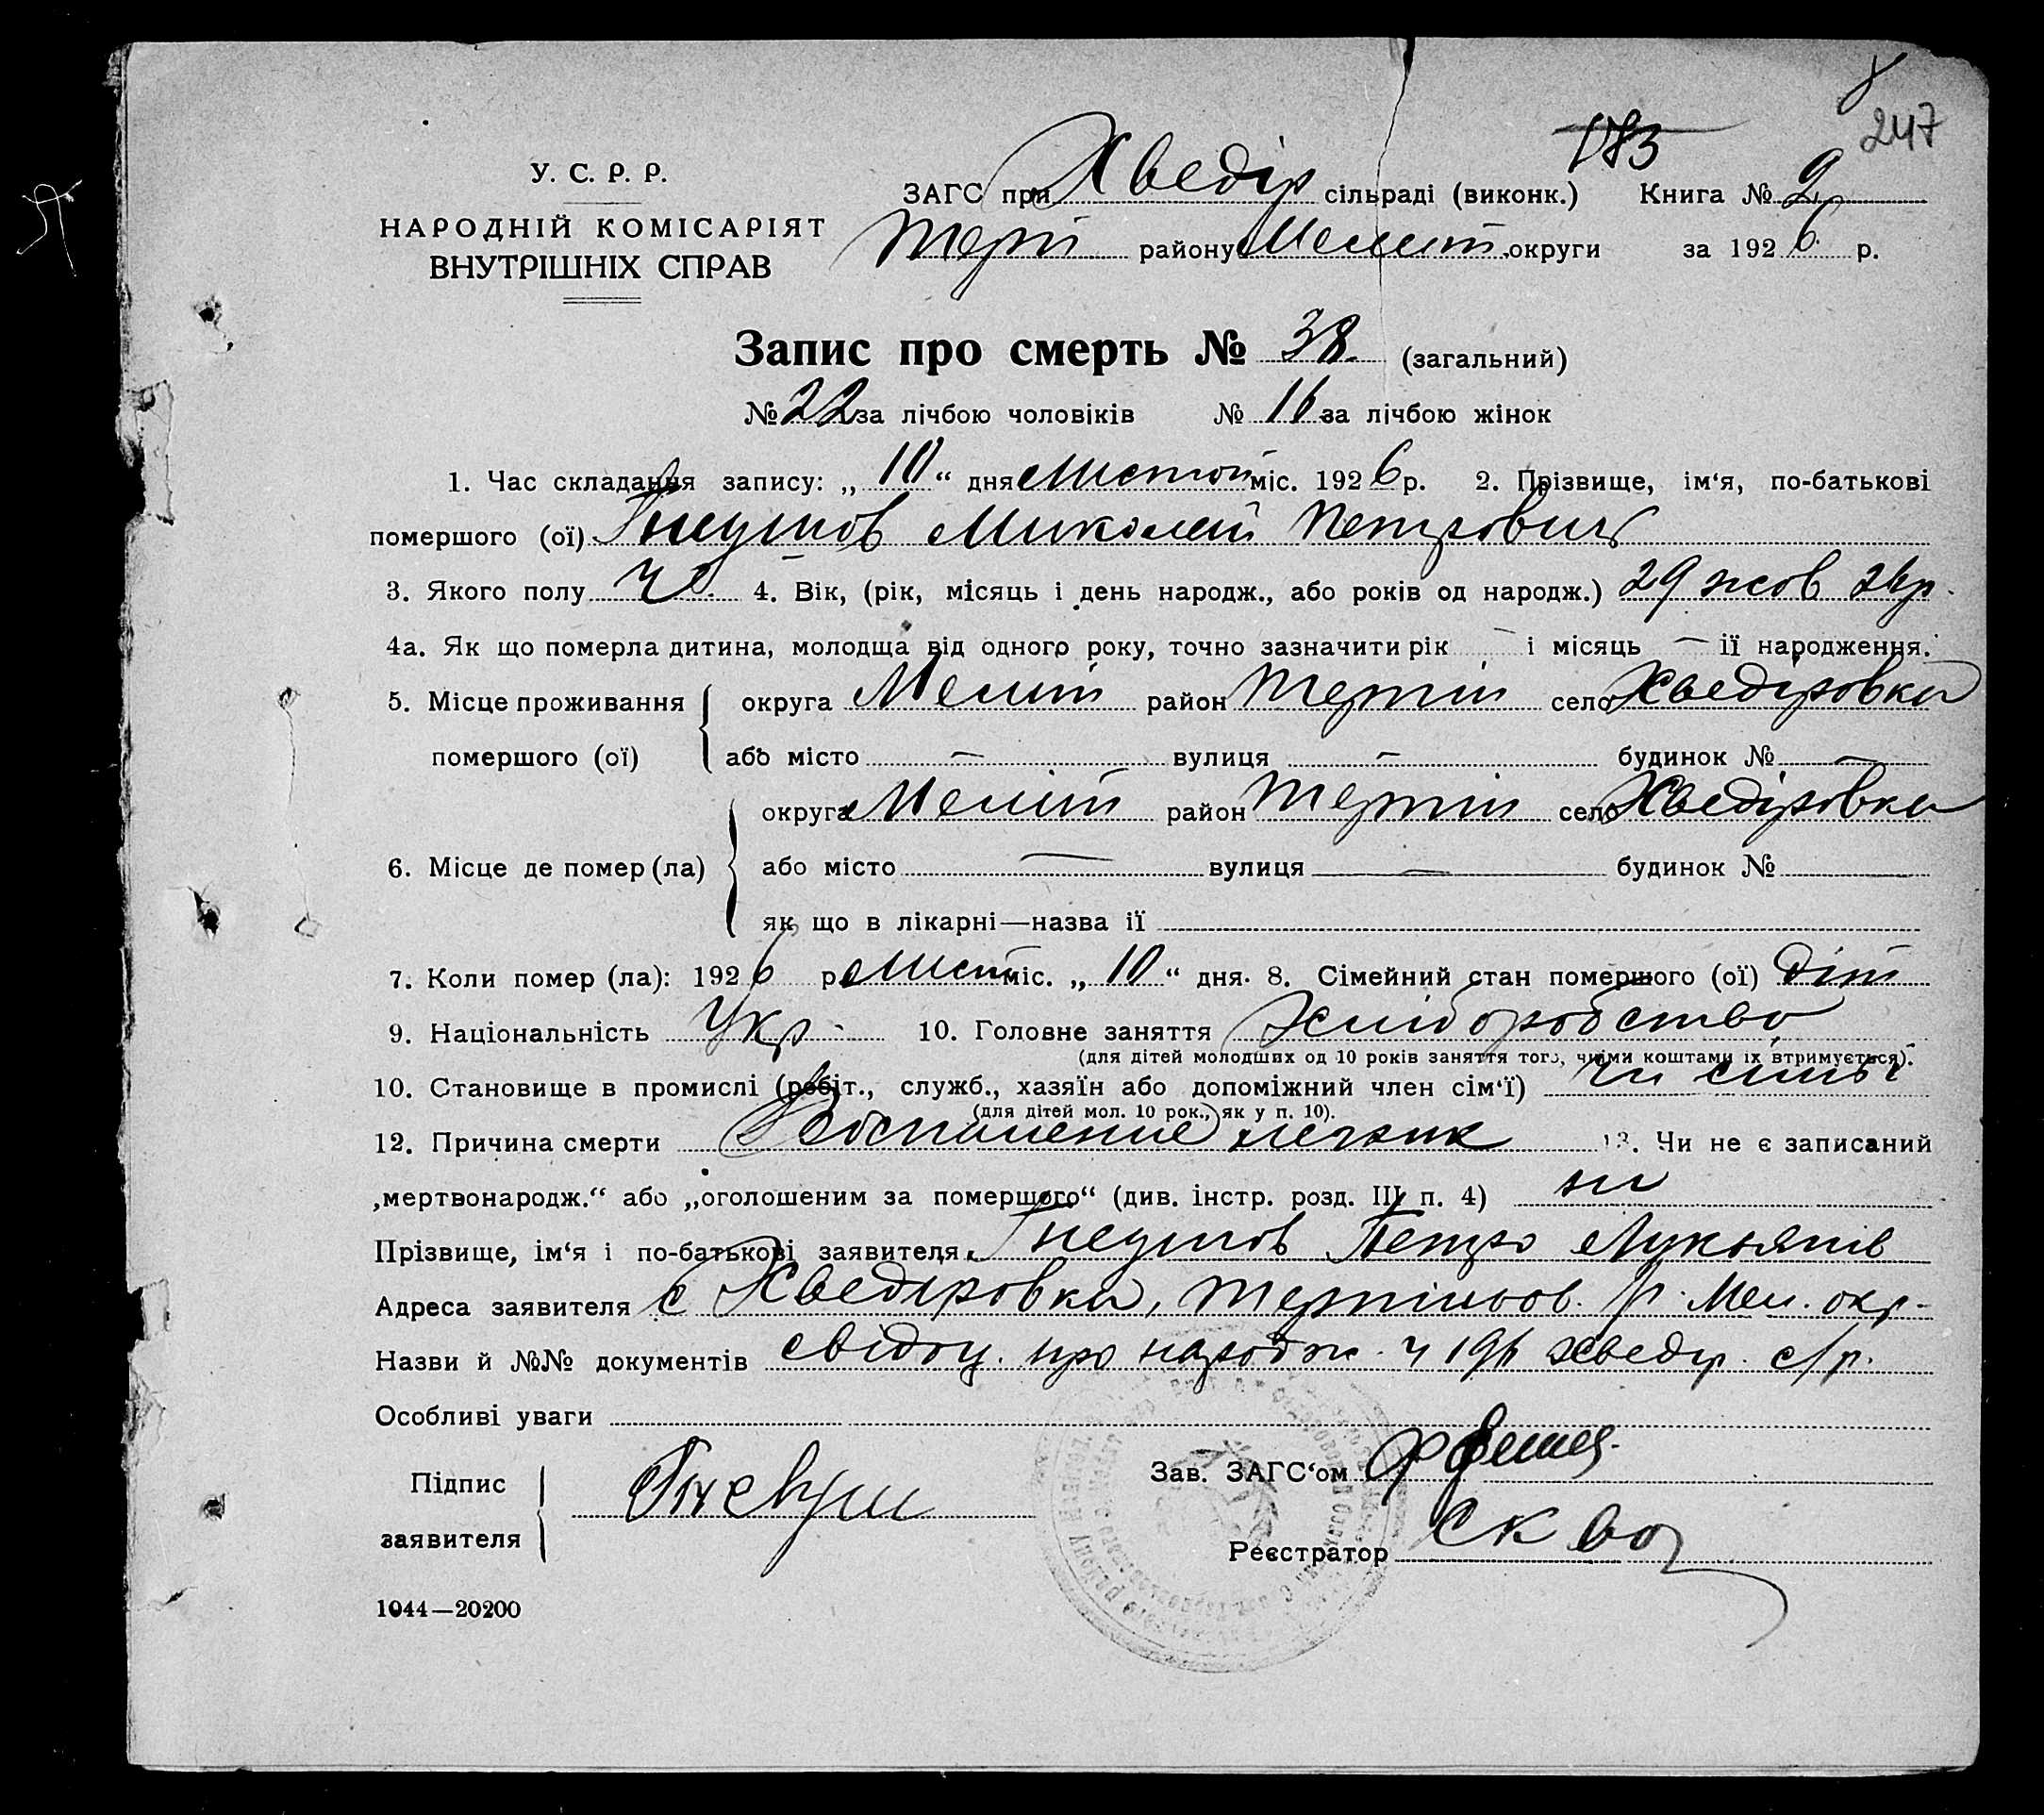 247
183
У. С. Р. Р.
ЗАГС при Хведір сільраді (виконк.) Книга № 2
НАРОДНІЙ КОМІСАРІЯТ
ВНУТРІШНІХ СПРАВ
Терп району Меліт округи за 1926 р.
Запис про смерть № 38 (загальний)
№ 22 за лічбою чоловіків № 16 за лічбою жінок
1. Час складання запису: „10“ дня міс. 1926 р. 2. Прізвище, ім‘я, по-батькові
помершого (ої) Миколай Петрович
3. Якого полу ч. 4. Вік, (рік, місяць і день народж., або років од народж.) 29 жов 26 р.
4а. Як що померла дитина, молодща від одного року, точно зазначити рік — і місяць — ії народження.
5. Місце проживання округа Меліт район село Хведіровка
помершого (ої) або місто — вулиця — будинок № —
округа Меліт район село Хведіровка
6. Місце де помер (ла) або місто — вулиця — будинок №
як що в лікарні—назва ії
7. Коли помер (ла): 1926 р. Лист міс. „10“ дня. 8. Сімейний стан помершого (ої) діт
9. Національність Укр. 10. Головне заняття Хліборобство
(для дітей молодших од 10 років заняття того, чиїми коштами їх втримується).
10. Становище в промислі (робіт., служб., хазяїн або допоміжний член сім‘ї) чл сімьі
(для дітей мол. 10 рок., як у п. 10).
12. Причина смерти Воспаление легких 13. Чи не є записаний
„мертвонародж.“ або „оголошеним за помершого“ (див. інстр. розд. III п. 4) ні
Прізвище, ім‘я і по-батькові заявителя Петро Лукьянів
Адреса заявителя с Хведіровка, р. Мел. окр.
Назви й №№ документів свідоц. про народж. ч 196 хведір. с/р.
Особливі уваги
Підпис
заявителя
Зав. ЗАГС‘ом
Реєстратор
1044—20200